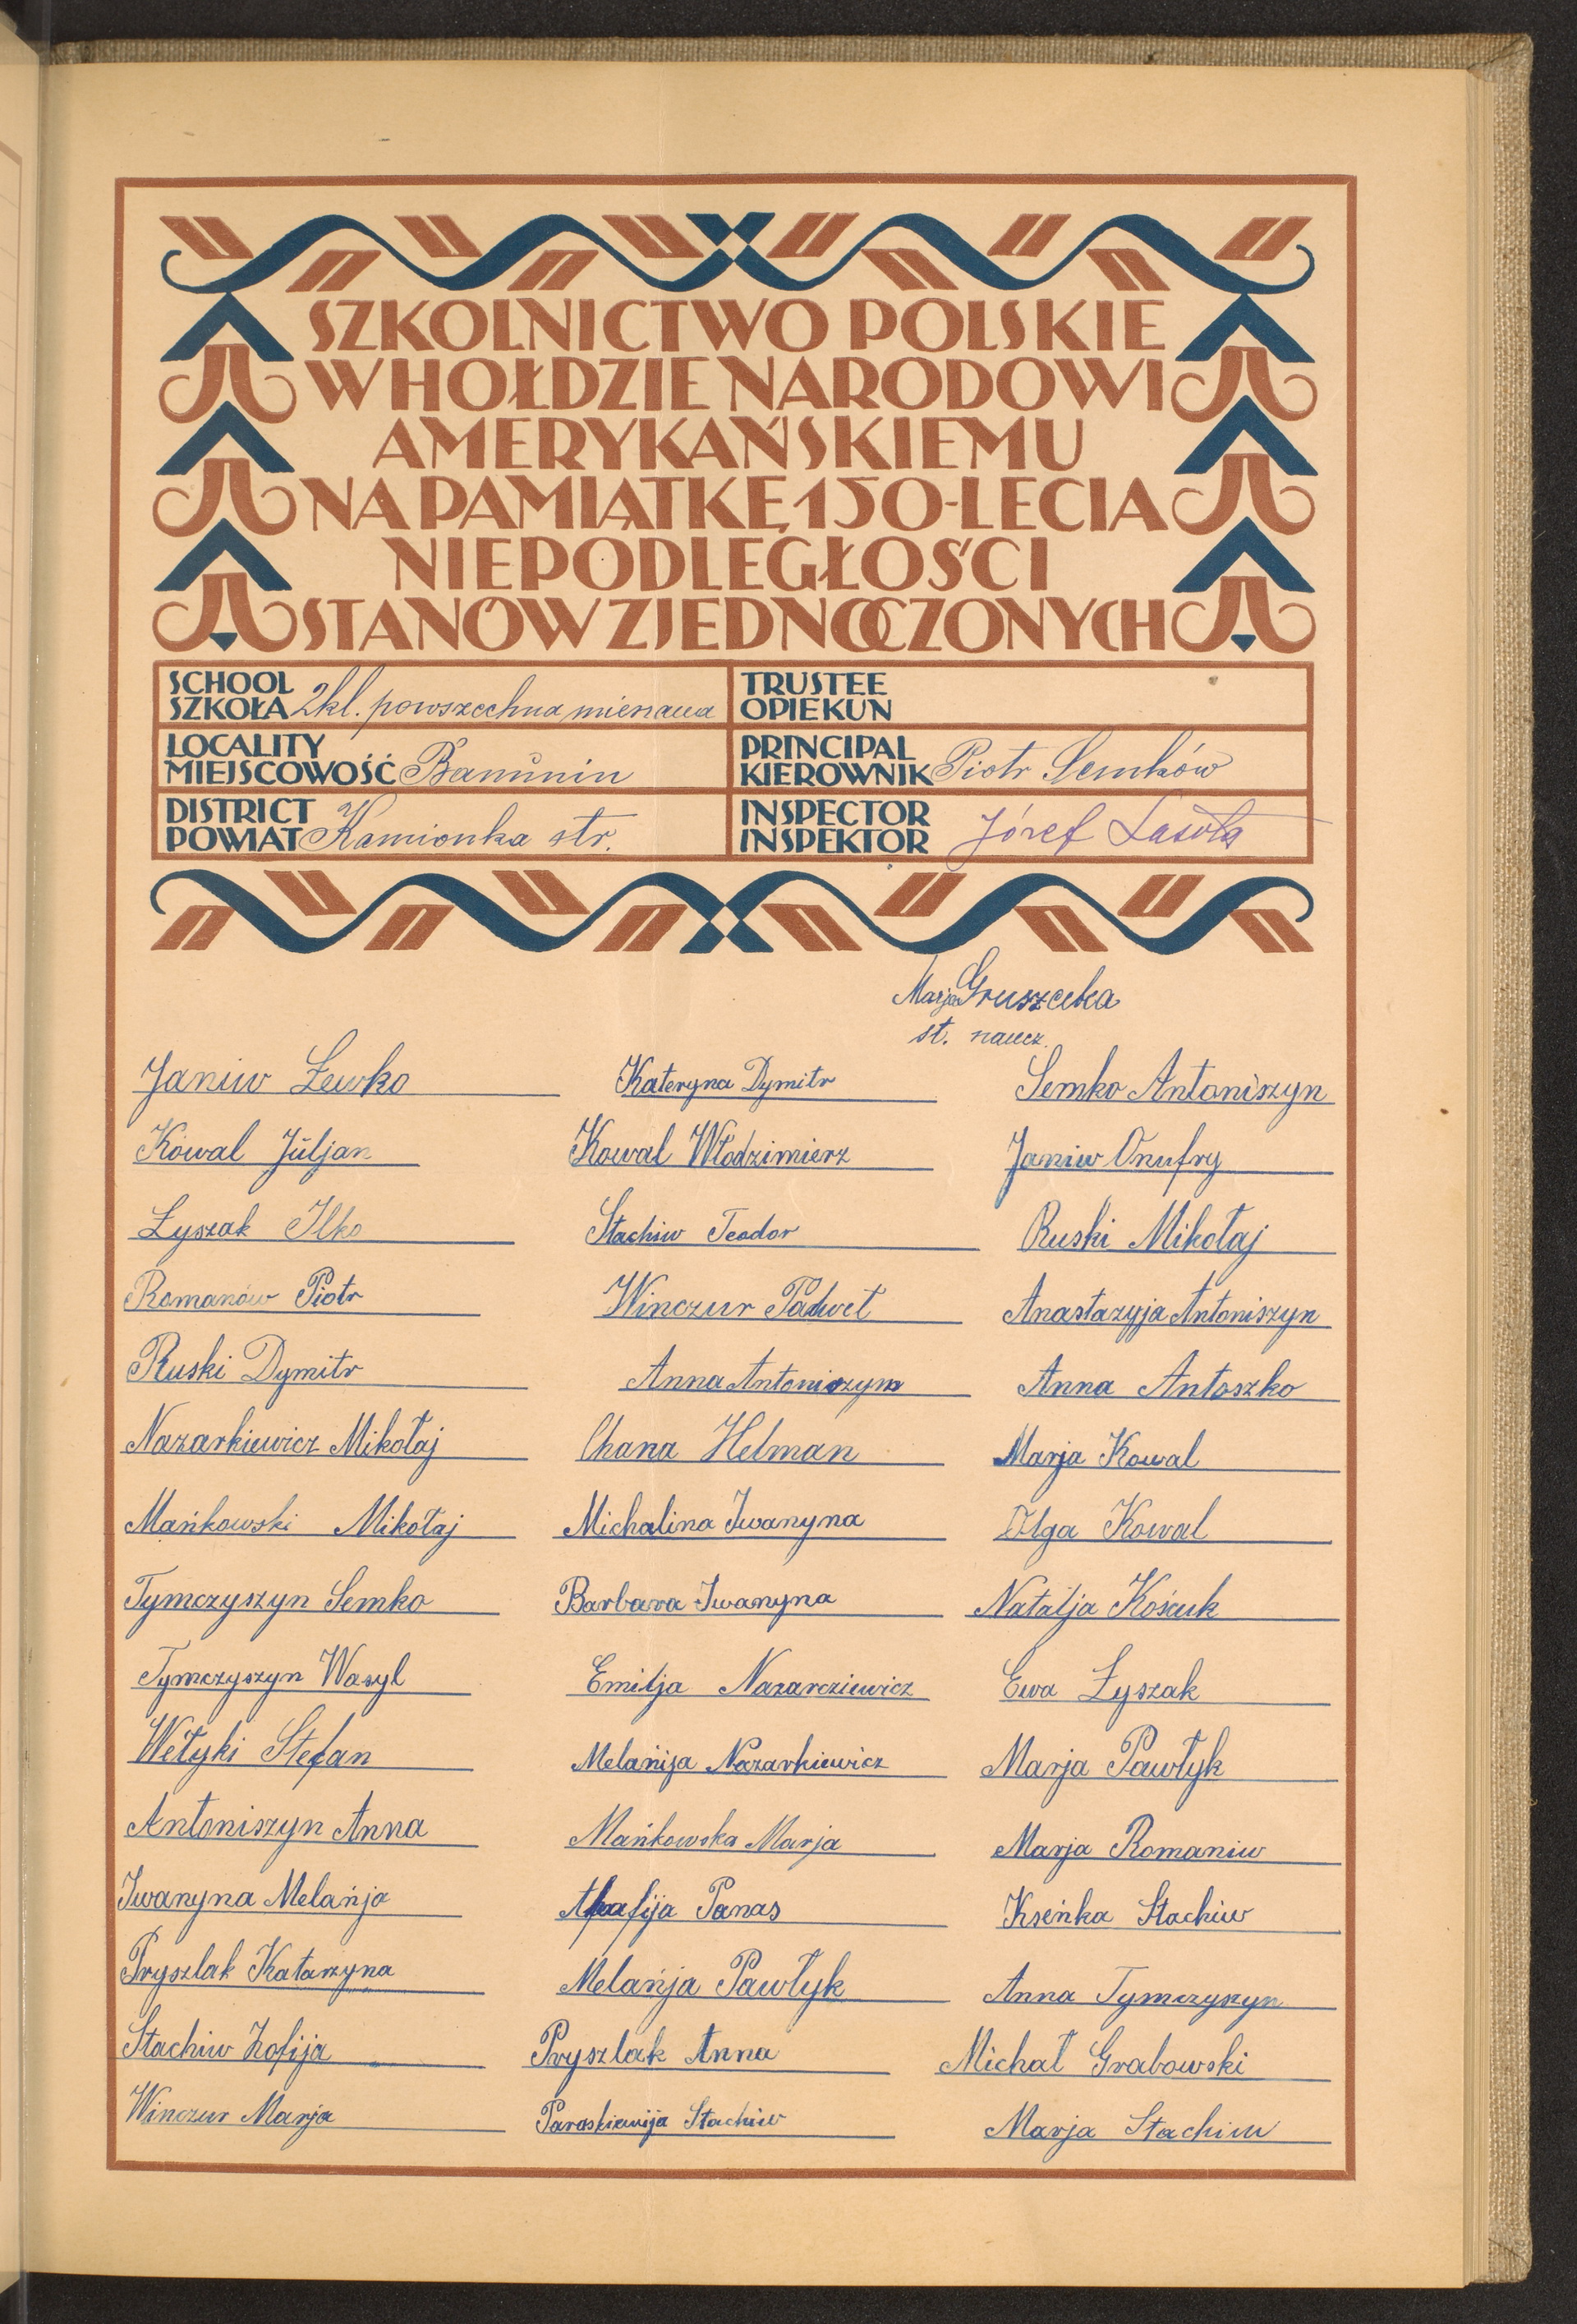 SZKOLNICTWO POLSKIE
W HOŁDZIE NARODOWI
AMERYKAŃSKIEMU
NA PAMIĄTKĘ 150-LECIA
NIEPODLEGŁOŚCI
STANÓW ZJEDNOCZONYCH
SCHOOL
SZKOŁA 2kl. powszechna mieszana
TRUSTEE
OPIEKUN
LOCALITY
MIEJSCOWOŚĆ Banunin
PRINCIPAL
KIEROWNIK Piotr Semków
DISTRICT
POWIAT Kamionka str.
INSPECTOR
INSPEKTOR Józef Lasota
Marja Gruszecka
st. naucz.
Janiw Łewko
Kowal Juljan
Łyszak Ilko
Romanów Piotr
Ruski Dymitr
Nazarkiewicz Mikołaj
Mańkowski Mikołaj
Tymczyszyn Semko
Tymczyszyn Wasyl
Wełyki Stefan
Antoniszyn Anna
Iwanyna Melańja
Pryszlak Katarzyna
Stachiw Zofija
Winczur Marja
Kateryna Dymitr
Kowal Włodzimierz
Stachiw Teodor
Winczur Paweł
Anna Antoniszyn
Chana Helman
Michalina Iwanyna
Barbara Iwanyna
Emilja Nazarcziewicz
Melańija Nazarkiewicz
Mańkowska Marja
Panas
Melańja Pawłyk
Pryszlak Anna
Paraskiewija Stachiw
Semko Antoniszyn
Janiw Onufry
Ruski Mikołaj
Anastazyja Antoniszyn
Anna Antoszko
Marja Kowal
Olga Kowal
Natalja Kościuk
Ewa Łyszak
Marja Pawłyk
Marja Romaniw
Kseńka Stachiw
Anna Tymczyszyn
Michał Grabowski
Marja Stachiw